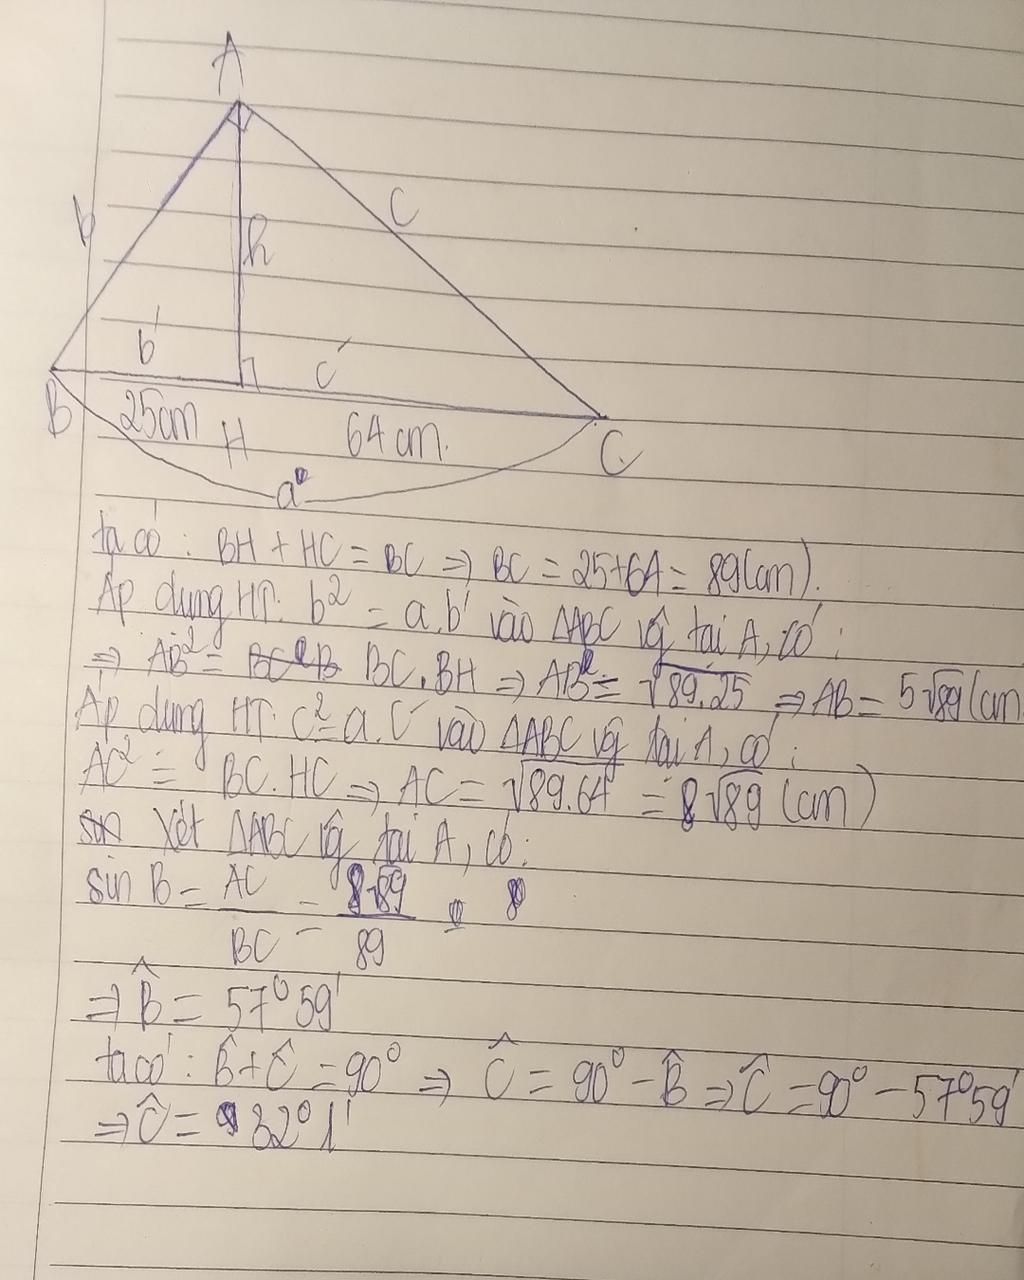 A
b
C
h
b'
c'
B
25cm
H
64 cm.
C
a
ta có: BH + HC = BC ⇒ BC = 25+64 = 89(cm).
Áp dụng HT: b² = a.b' vào ΔABC vg tại A, có:
⇒ AB² = BC.BH ⇒ AB = √89.25 ⇒ AB = 5√89 (cm
Áp dụng HT: c² = a.c' vào ΔABC vg tại A, có:
AC² = BC.HC ⇒ AC = √89.64 = 8√89 (cm)
Xét ΔABC vg tại A, có:
sin B = AC/BC = 8√89/89
⇒ B̂ = 57°59'
ta có: B̂ + Ĉ = 90° ⇒ Ĉ = 90° - B̂ ⇒ Ĉ = 90° - 57°59'
⇒ Ĉ = 32°1'